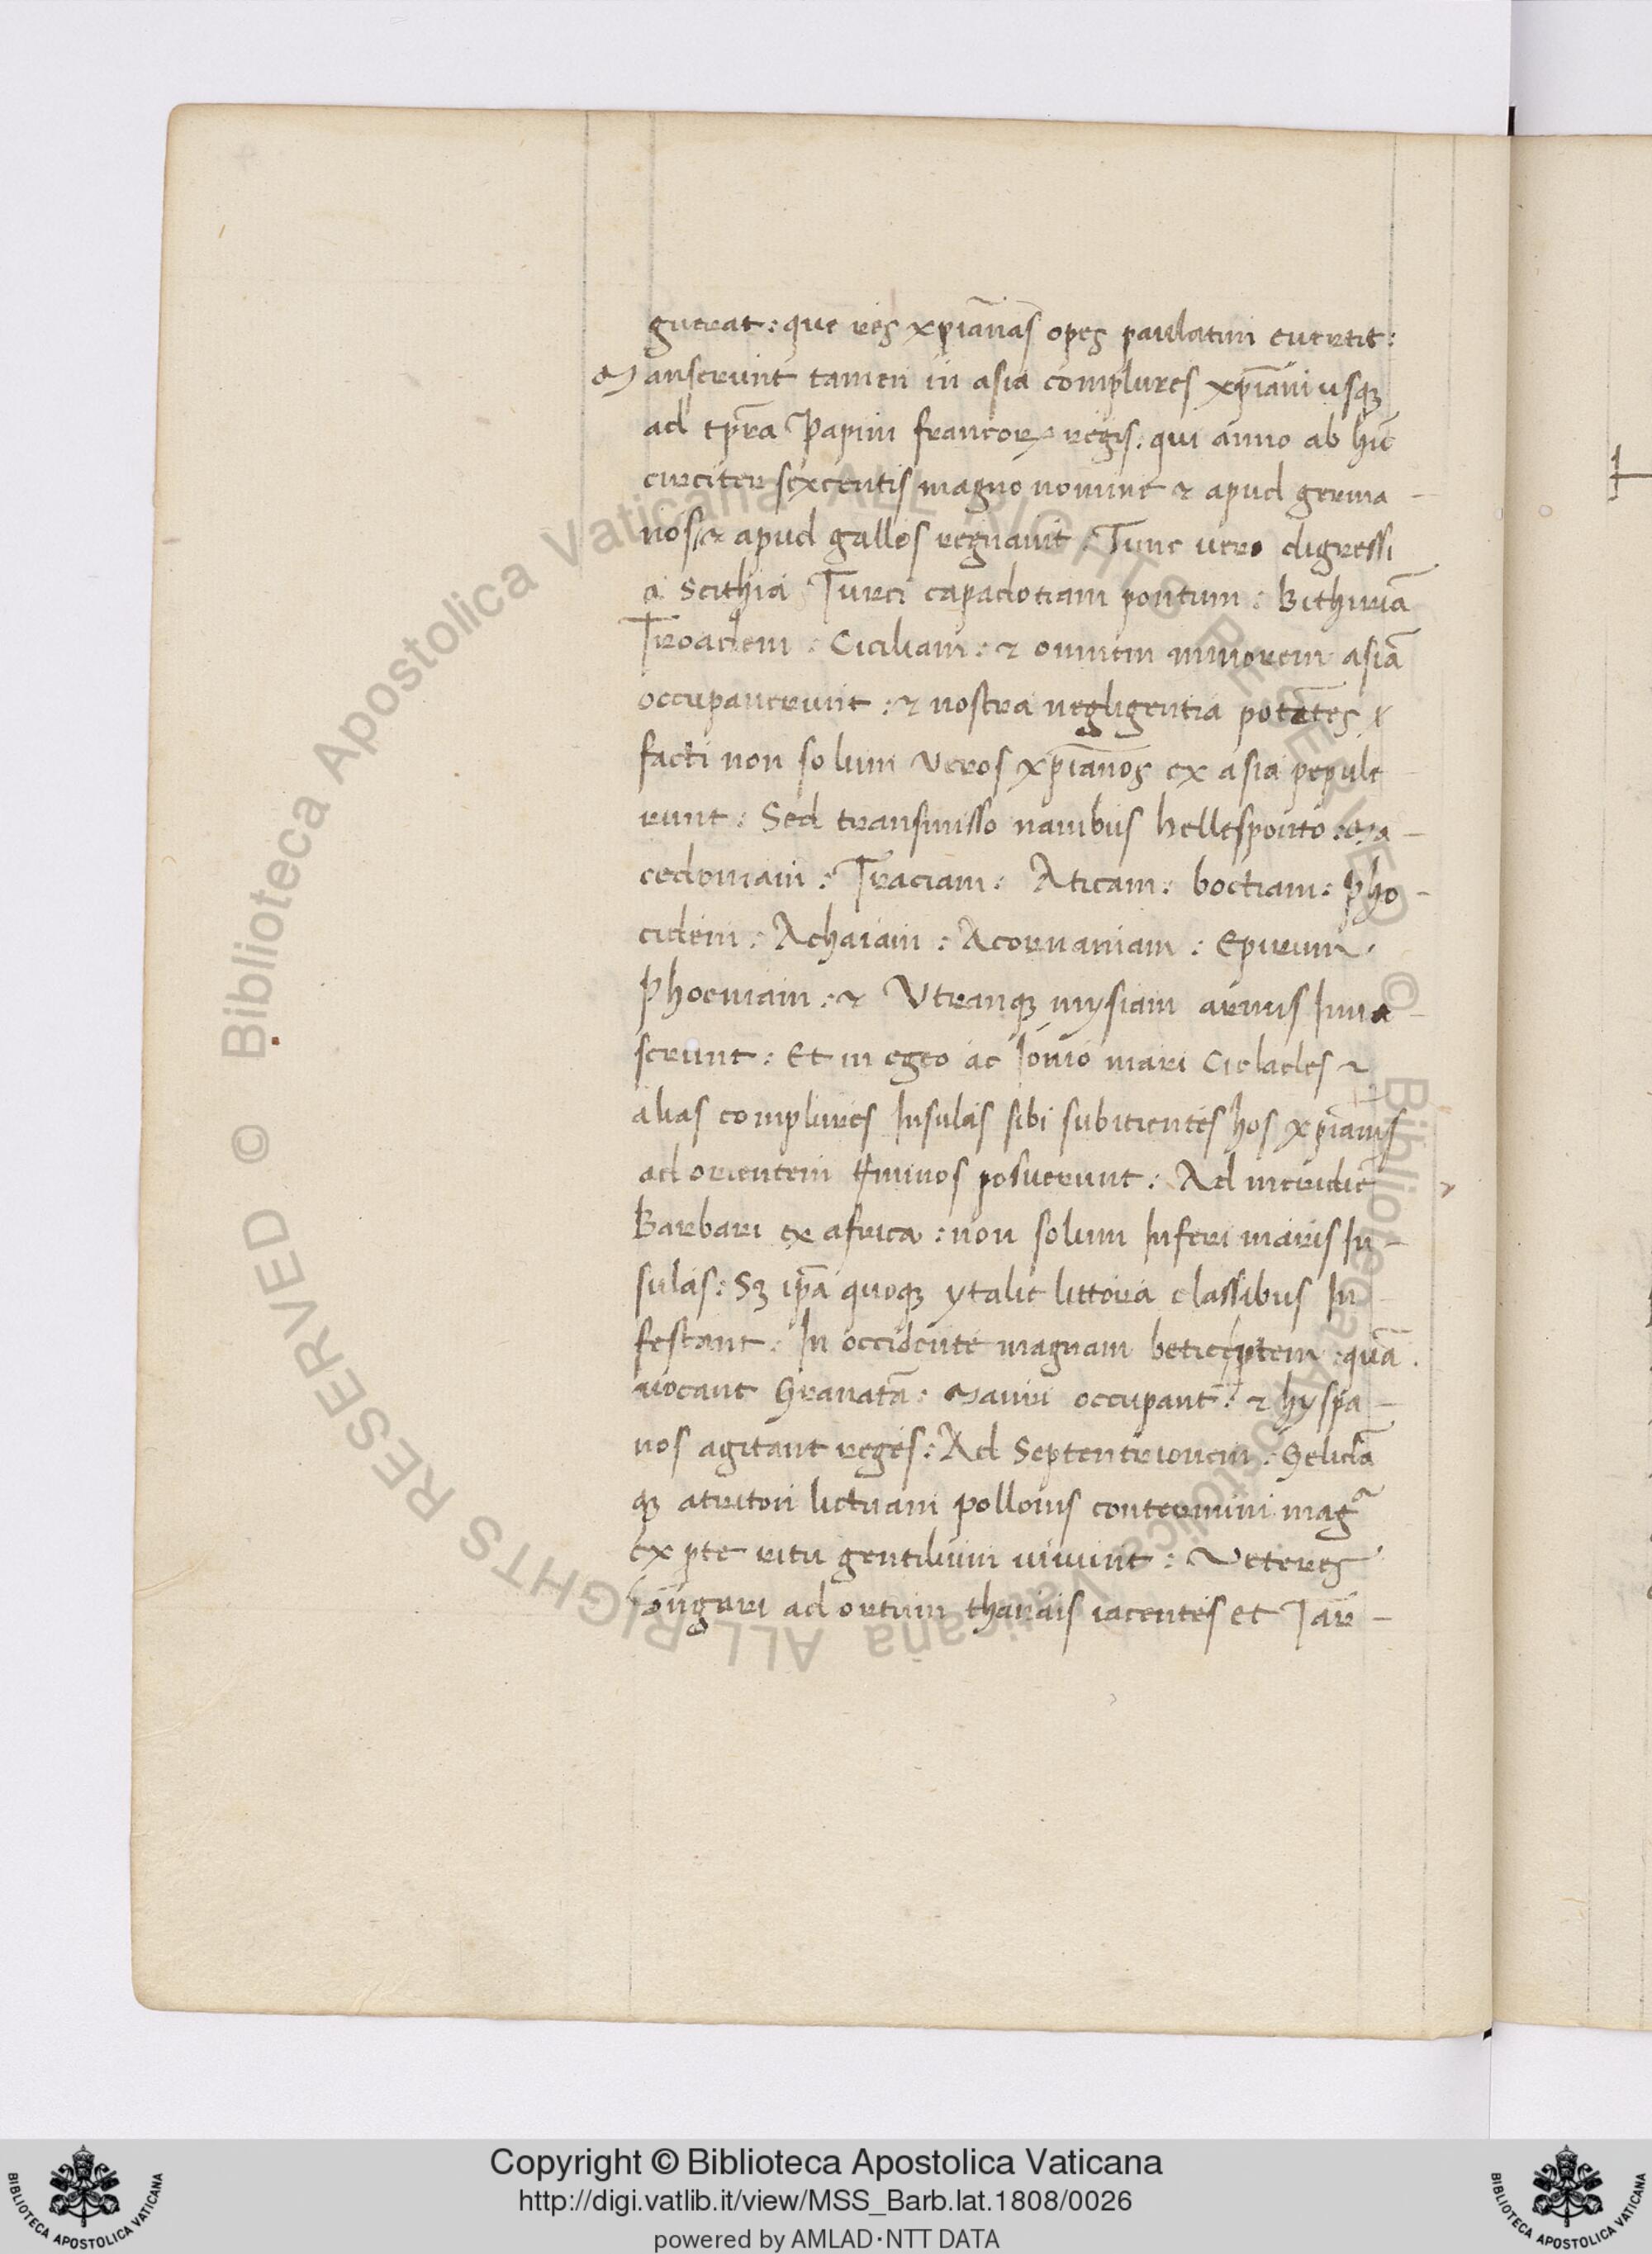 guerat : que res xp̄ianas opes paulatim euertit :
Manserunt tamen in asia complures xp̄iani usqꝫ
ad tp̄ra Papini francorꝝ regis . qui anno ab hīc
circiter sexcentis magno nomine ⁊ apud germa -
nos ⁊ apud gallos regnauit . Tunc uero digressi
a Scithia Turci capadotiam pontum : Bithiniā
Troadem : Ciciliam : ⁊ omnem minorem asiā
occupauerunt : ⁊ nostra negligentia potētes
facti non solum ueros xp̄ianos ex asia pepule
runt : Sed transmisso nauibus hellesponto : Ma -
cedoniam : Traciam : Aticam : boetiam : Pho -
cidem : Achaiam : Acornaniam : Epirum .
Phoeniam : ⁊ Vtranqꝫ mysiam armis Inua -
serunt : Et in egeo ac Ionio mari Ciclades ⁊
alias complures Insulas sibi subitientes hos xp̄ianis
ad orientem tminos posuerunt : Ad meridiē
Barbari ex africa : non solum Inferi maris In -
sulas : Sꝫ ip̄a quoqꝫ ytalie littora classibus In -
festant : In occidente magnam betice ptem : quā .
uocant Granatā : Mauri occupant : ⁊ hyspa -
nos agitant reges : Ad Septentrionem : Gelidā
qꝫ lictuani pollonis contermini magᵃ
ex pte ritu gentilium uiuunt : Veteres
hōngari ad ortum thanais iacentes et Tar -
Copyright © Biblioteca Apostolica Vaticana
http://digi.vatlib.it/view/MSS_Barb.lat.1808/0026
powered by AMLAD·NTT DATA
BIBLIOTECA APOSTOLICA VATICANA
BIBLIOTECA APOSTOLICA VATICANA
© Biblioteca Apostolica Vaticana ALL RIGHTS RESERVED © Biblioteca Apostolica Vaticana ALL RIGHTS RESERVED